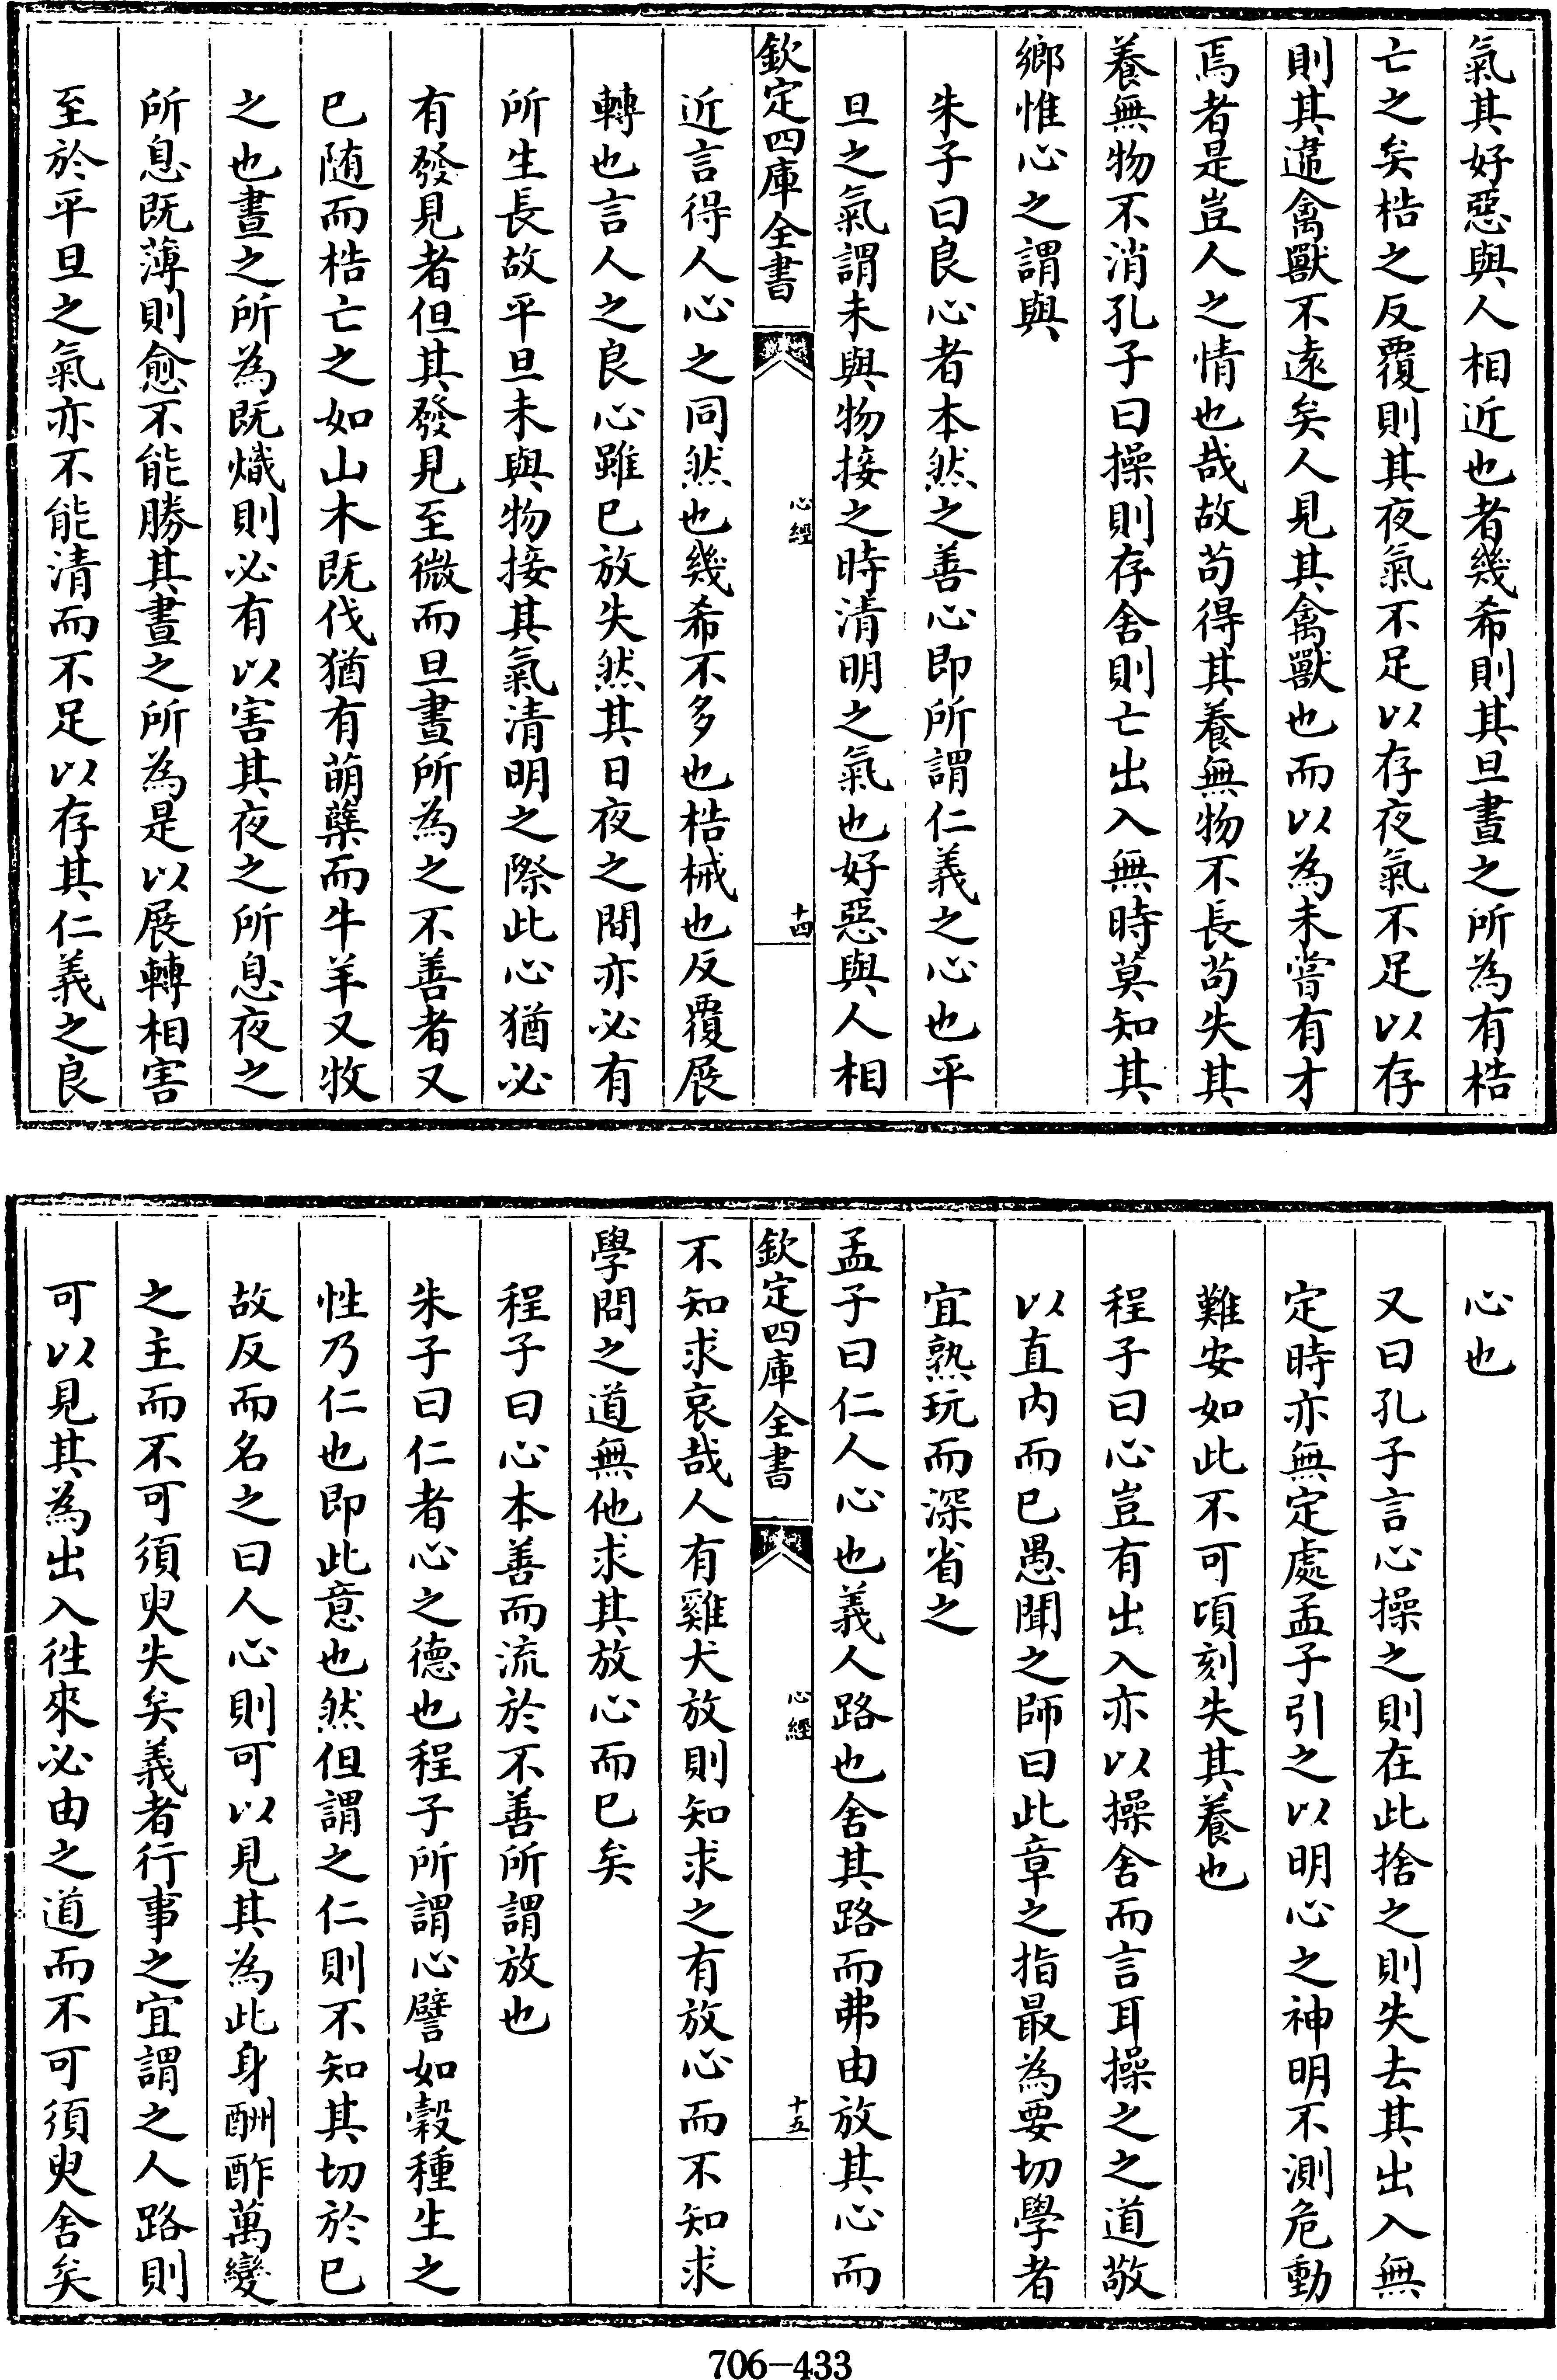 氣其好惡與人相近也者幾希則其旦晝之所為有梏
亡之矣梏之反覆則其夜氣不足以存夜氣不足以存
則其違禽獸不遠矣人見其禽獸也而以為未嘗有才
焉者是豈人之情也哉故苟得其養無物不長苟失其
養無物不消孔子曰操則存舍則亡出入無時莫知其
鄉惟心之謂與
朱子曰良心者本然之善心即所謂仁義之心也平
旦之氣謂未與物接之時清明之氣也好惡與人相
欽定四庫全書
心經
十四
近言得人心之同然也幾希不多也梏械也反覆展
轉也言人之良心雖已放失然其日夜之間亦必有
所生長故平旦未與物接其氣清明之際此心猶必
有發見者但其發見至微而旦晝所為之不善者又
已随而梏亡之如山木既伐猶有萌蘖而牛羊又牧
之也晝之所為既熾則必有以害其夜之所息夜之
所息既薄則愈不能勝其晝之所為是以展轉相害
至於平旦之氣亦不能清而不足以存其仁義之良
心也
又曰孔子言心操之則在此捨之則失去其出入無
定時亦無定處孟子引之以明心之神明不測危動
難安如此不可頃刻失其養也
程子曰心豈有出入亦以操舍而言耳操之之道敬
以直内而已愚聞之師曰此章之指最為要切學者
宜熟玩而深省之
孟子曰仁人心也義人路也舍其路而弗由放其心而
欽定四庫全書
心經
十五
不知求哀哉人有雞犬放則知求之有放心而不知求
學問之道無他求其放心而已矣
程子曰心本善而流於不善所謂放也
朱子曰仁者心之德也程子所謂心譬如穀種生之
性乃仁也即此意也然但謂之仁則不知其切於已
故反而名之曰人心則可以見其為此身酬酢萬變
之主而不可須臾失矣義者行事之宜謂之人路則
可以見其為出入徃來必由之道而不可須臾舍矣
706-433